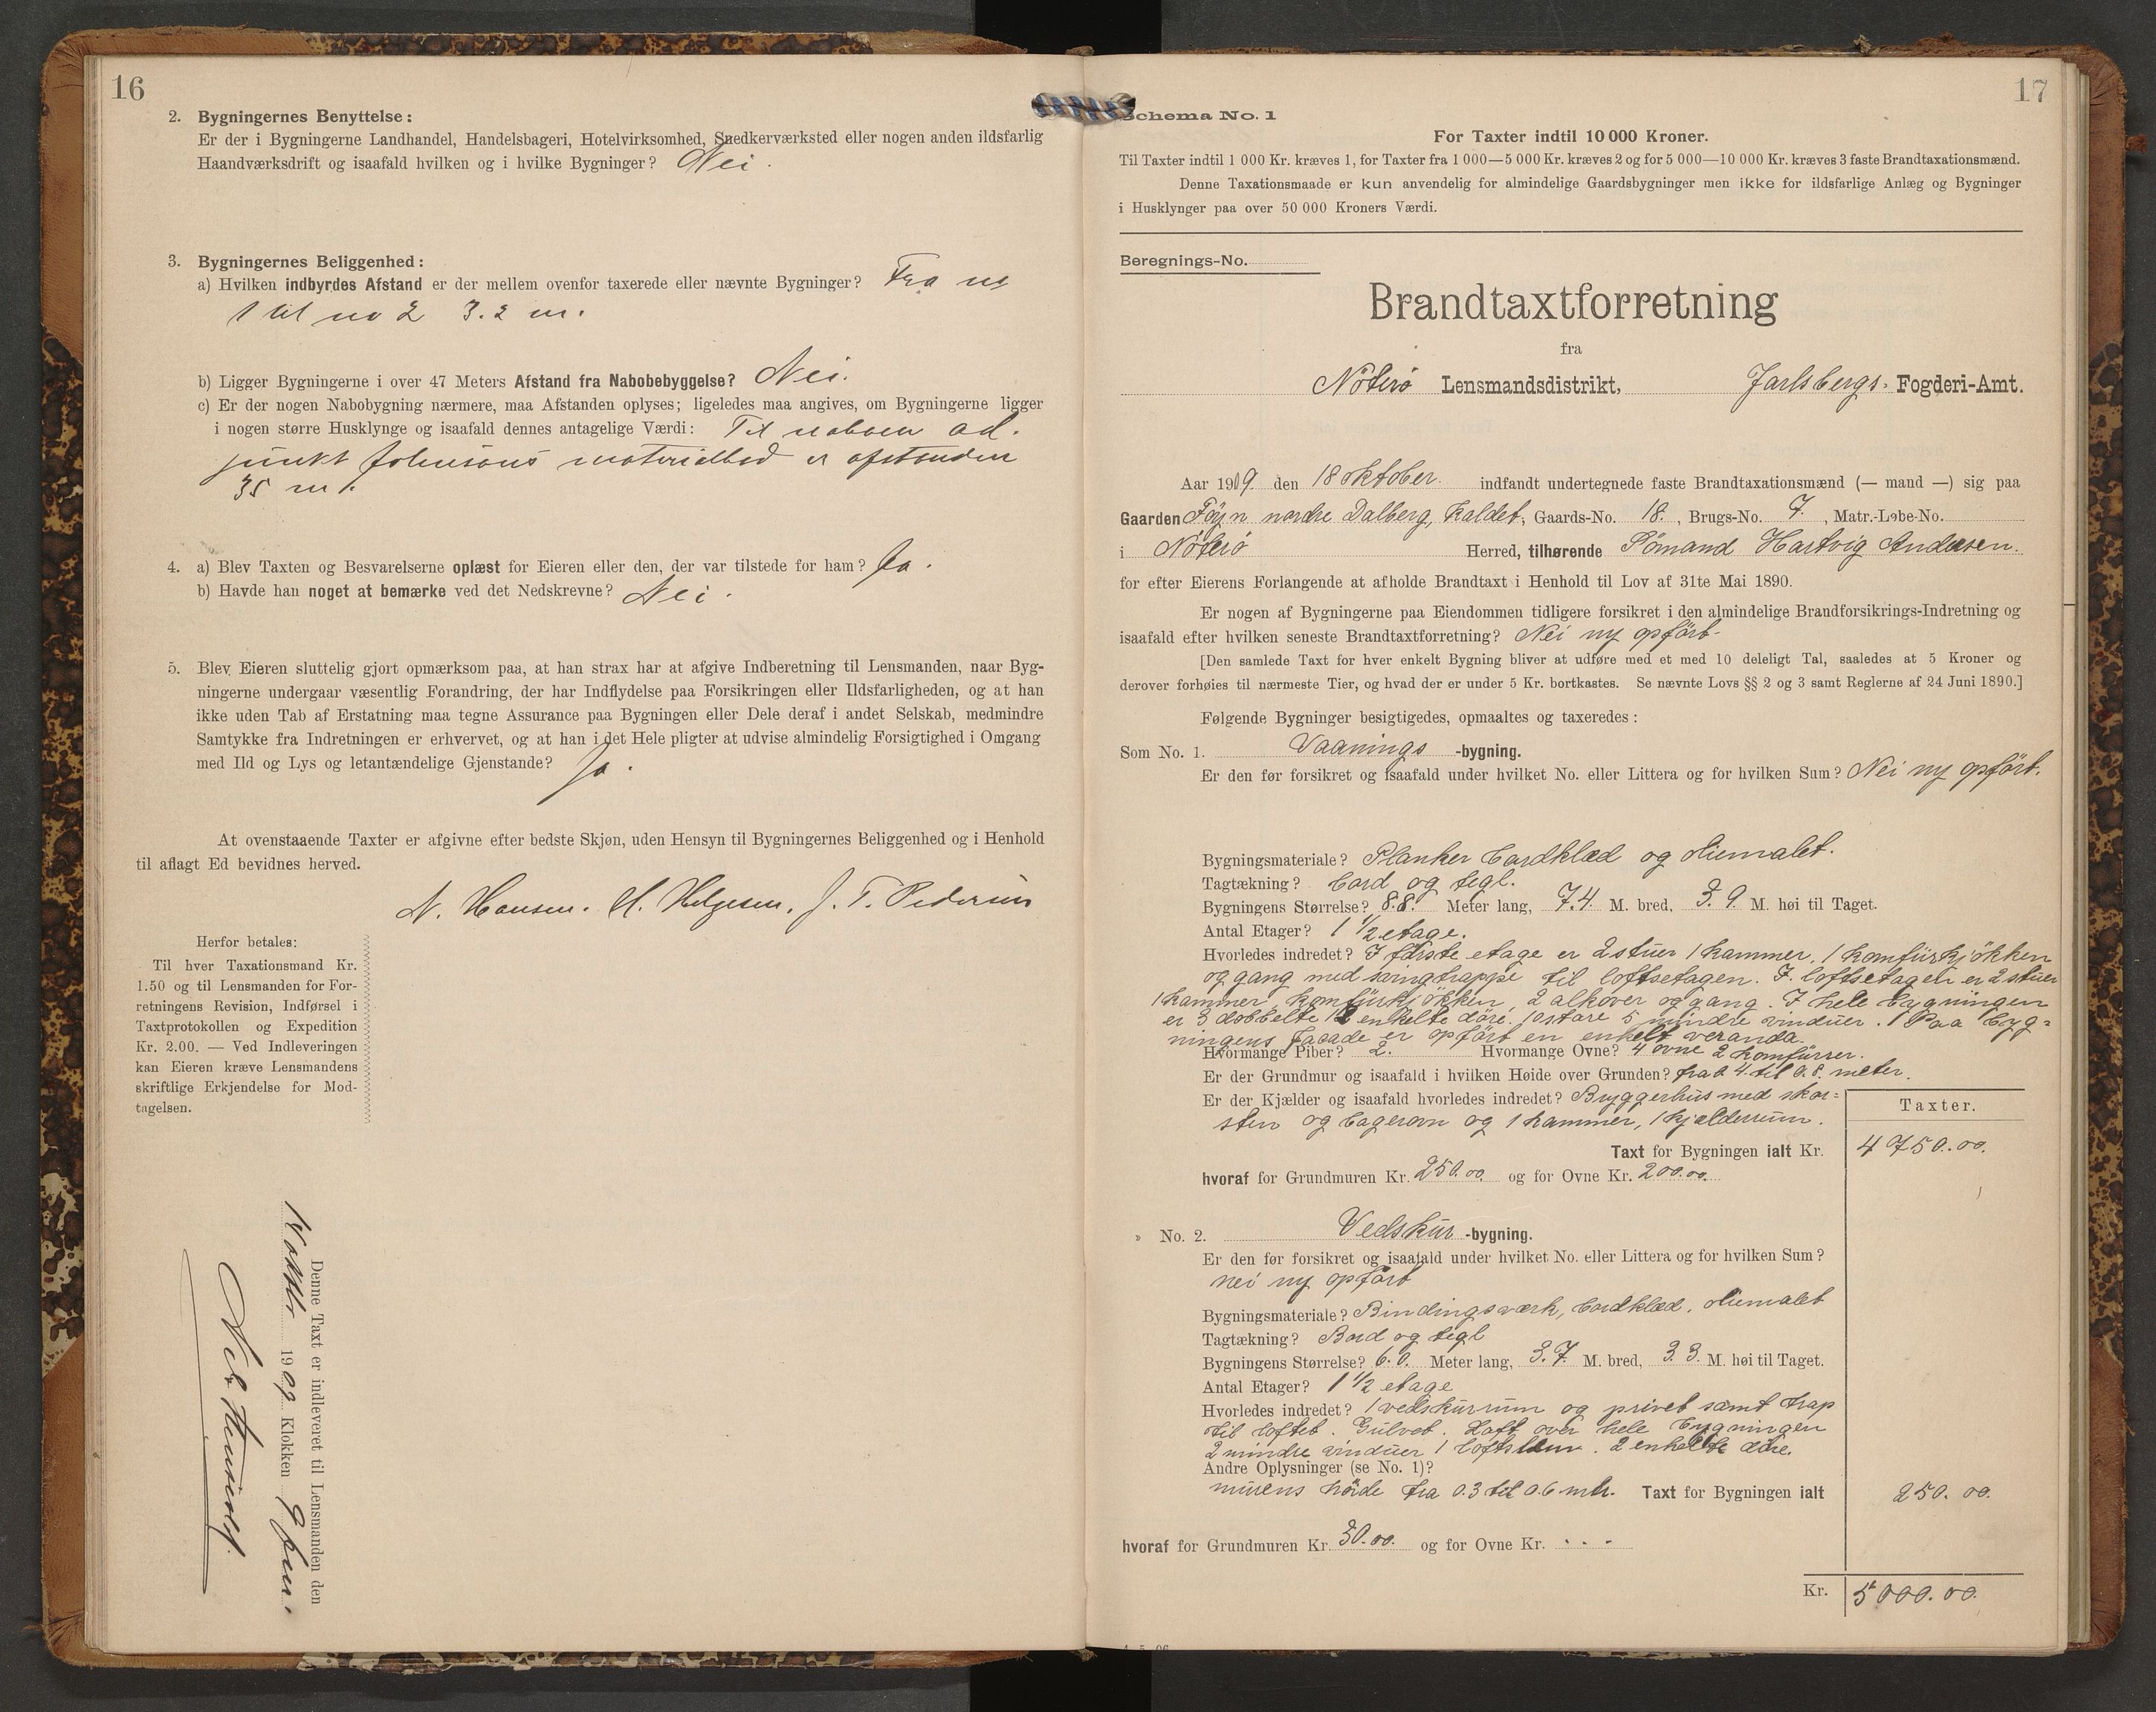 16
2. Bygningernes Benyttelse:
Er der i Bygningerne Landhandel, Handelsbageri, Hotelvirksomhed, Snedkerværksted eller nogen anden ildsfarlig
Haandværksdrift og isaafald hvilken og i hvilke Bygninger? Nei.
3. Bygningernes Beliggenhed:
a) Hvilken indbyrdes Afstand er der mellem ovenfor taxerede eller nævnte Bygninger? Fra no
1 til no 2 3.2 m.
b) Ligger Bygningerne i over 47 Meters Afstand fra Nabobebyggelse? Nei.
c) Er der nogen Nabobygning nærmere, maa Afstanden oplyses; ligeledes maa angives, om Bygningerne ligger
i nogen større Husklynge og isaafald dennes antagelige Værdi: Til naboen ad-
junkt Johnsons materialbod er afstanden
35 m.
4. a) Blev Taxten og Besvarelserne oplæst for Eieren eller den, der var tilstede for ham? Ja.
b) Havde han noget at bemærke ved det Nedskrevne? Nei.
5. Blev Eieren sluttelig gjort opmærksom paa, at han strax har at afgive Indberetning til Lensmanden, naar Byg-
ningerne undergaar væsentlig Forandring, der har Indflydelse paa Forsikringen eller Ildsfarligheden, og at han
ikke uden Tab af Erstatning maa tegne Assurance paa Bygningen eller Dele deraf i andet Selskab, medmindre
Samtykke fra Indretningen er erhvervet, og at han i det Hele pligter at udvise almindelig Forsigtighed i Omgang
med Ild og Lys og letantændelige Gjenstande? Ja.
At ovenstaaende Taxter er afgivne efter bedste Skjøn, uden Hensyn til Bygningernes Beliggenhed og i Henhold
til aflagt Ed bevidnes herved.
N. Hansen. H. Helgesen. J. T. Pedersen
Herfor betales:
Til hver Taxationsmand Kr.
1.50 og til Lensmanden for For-
retningens Revision, Indførsel i
Taxtprotokollen og Expedition
Kr. 2.00. — Ved Indleveringen
kan Eieren kræve Lensmandens
skriftlige Erkjendelse for Mod-
tagelsen.
Denne Taxt er indleveret til Lensmanden den
1909 Klokken 9 fm.
17
Schema No. 1
For Taxter indtil 10 000 Kroner.
Til Taxter indtil 1 000 Kr. kræves 1, for Taxter fra 1 000—5 000 Kr. kræves 2 og for 5 000—10 000 Kr. kræves 3 faste Brandtaxationsmænd.
Denne Taxationsmaade er kun anvendelig for almindelige Gaardsbygninger men ikke for ildsfarlige Anlæg og Bygninger
i Husklynger paa over 50 000 Kroners Værdi.
Beregnings-No.
Brandtaxtforretning
fra
Nøterø Lensmandsdistrikt, Jarlsbergs Fogderi-Amt.
Aar 1909. den 18 oktober indfandt undertegnede faste Brandtaxationsmænd (— mand —) sig paa
Gaarden Föyn nordre Dalberg, kaldet, Gaards-No. 18., Brugs-No. 7., Matr.-Løbe-No.
i Nöterö Herred, tilhørende Sömand Hartvig Andersen.
for efter Eierens Forlangende at afholde Brandtaxt i Henhold til Lov af 31te Mai 1890.
Er nogen af Bygningerne paa Eiendommen tidligere forsikret i den almindelige Brandforsikrings-Indretning og
isaafald efter hvilken seneste Brandtaxtforretning? Nei ny opfört.
[Den samlede Taxt for hver enkelt Bygning bliver at udføre med et med 10 deleligt Tal, saaledes at 5 Kroner og
derover forhøies til nærmeste Tier, og hvad der er under 5 Kr. bortkastes. Se nævnte Lovs §§ 2 og 3 samt Reglerne af 24 Juni 1890.]
Følgende Bygninger besigtigedes, opmaaltes og taxeredes:
Som No. 1. Vaanings-bygning.
Er den før forsikret og isaafald under hvilket No. eller Littera og for hvilken Sum? Nei ny opfört.
Bygningsmateriale? Planker bordklæd og oliemalet.
Tagtækning? bord og tegl.
Bygningens Størrelse? 8.8. Meter lang, 7.4 M. bred, 3.9 M. høi til Taget.
Antal Etager? 1 1/2 etage.
Hvorledes indredet? I förste etage er 2 stuer 1 kammer. 1 komfürkjökken
og gang med svingtrappe til loftsetagen. I loftsetagen er 2 stuer
1 kammer, komfürkjökken, 2 alkover og gang. I hele bygningen
er 3 dobbelte 12 enkelte döre. 10 store 5 mindre vinduer. 1 Paa byg-
ningens facade er opfört en enkelt veranda.
Hvormange Piber? 2. Hvormange Ovne? 4 ovne 2 komfürer.
Er der Grundmur og isaafald i hvilken Høide over Grunden? fra 0.4 til 0.8. meter.
Er der Kjælder og isaafald hvorledes indredet? Bryggerhus med skor-
sten og bagerovn og 1 kammer, 1 kjælderrum.
Taxter.
Taxt for Bygningen ialt Kr. 4750.00.
hvoraf for Grundmuren Kr. 250.00 og for Ovne Kr. 200.00.
» No. 2. Vedskur-bygning.
Er den før forsikret og isaafald under hvilket No. eller Littera og for hvilken Sum?
nei ny opfört
Bygningsmateriale? Bindingsværk, bordklæd, oliemalet
Tagtækning? Bord og tegl
Bygningens Størrelse? 6.0. Meter lang, 3.7 M. bred, 3.3. M. høi til Taget.
Antal Etager? 1 1/2 etage
Hvorledes indredet? 1 vedskurrum og privet samt trap
til loftet. Gulvet. Loft over hele bygningen
2 mindre vinduer 1 loftslem. 2 enkelte döre.
Andre Oplysninger (se No. 1)?
murens höide fra 0.3 til 0.6 mtr. Taxt for Bygningen ialt 250.00.
hvoraf for Grundmuren Kr. 30.00. og for Ovne Kr. - - -
Kr. 5000.00.